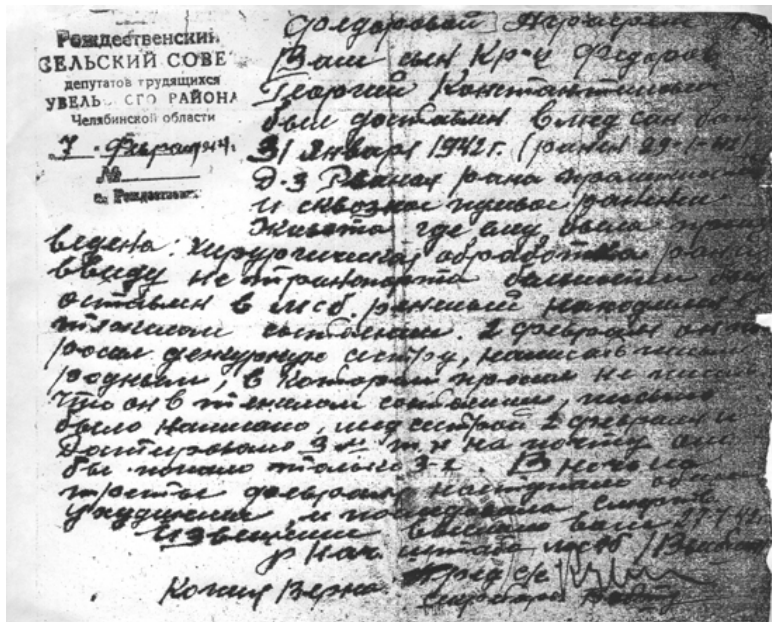 Рождественский
СЕЛЬСКИЙ СОВЕ
депутатов трудящихся
УВЕЛЬ СГО РАЙОНА
Челябинской области
7 Февраля 4
№
с. Рождествен
Ваш сын Кр-ц Федоров
Георгий Константинович
был доставлен в мед сан бат
31 Января 1942 г. (ранен 29-1-42)
Д-з Рваная рана
и сквозное пулевое ранение
Живота где ему была произ
ведена хирургическая обработка ран
ввиду не транспорта бельности был
оставлен в мсб. раненый находился в
тяжелом состоянии. 2 февраля он поп
росил дежурную сестру, написать письмо
родным, в котором просил не писать
что он в тяжелом состоянии, письмо
было написано, мед сестрой 2 февраля и
датировано 3 т.к на почту оно
бы попало только 3-2. В ночь на
третье февраля наступило
ухудшение и последовала смерть
Извещение выслано вам
Нач. штаба мсб
Копия Верна Пред с/с
Секретарь